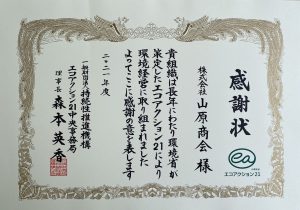 感謝状
株式会社 山原商会 様
貴組織は長年にわたり環境省が
策定したエコアクション21により
環境経営に取り組まれました
よってここに感謝の意を表します
二〇二一年度
一般財団法人 持続性推進機構
エコアクション21中央事務局
理事長 森本英香
ea
エコアクション21